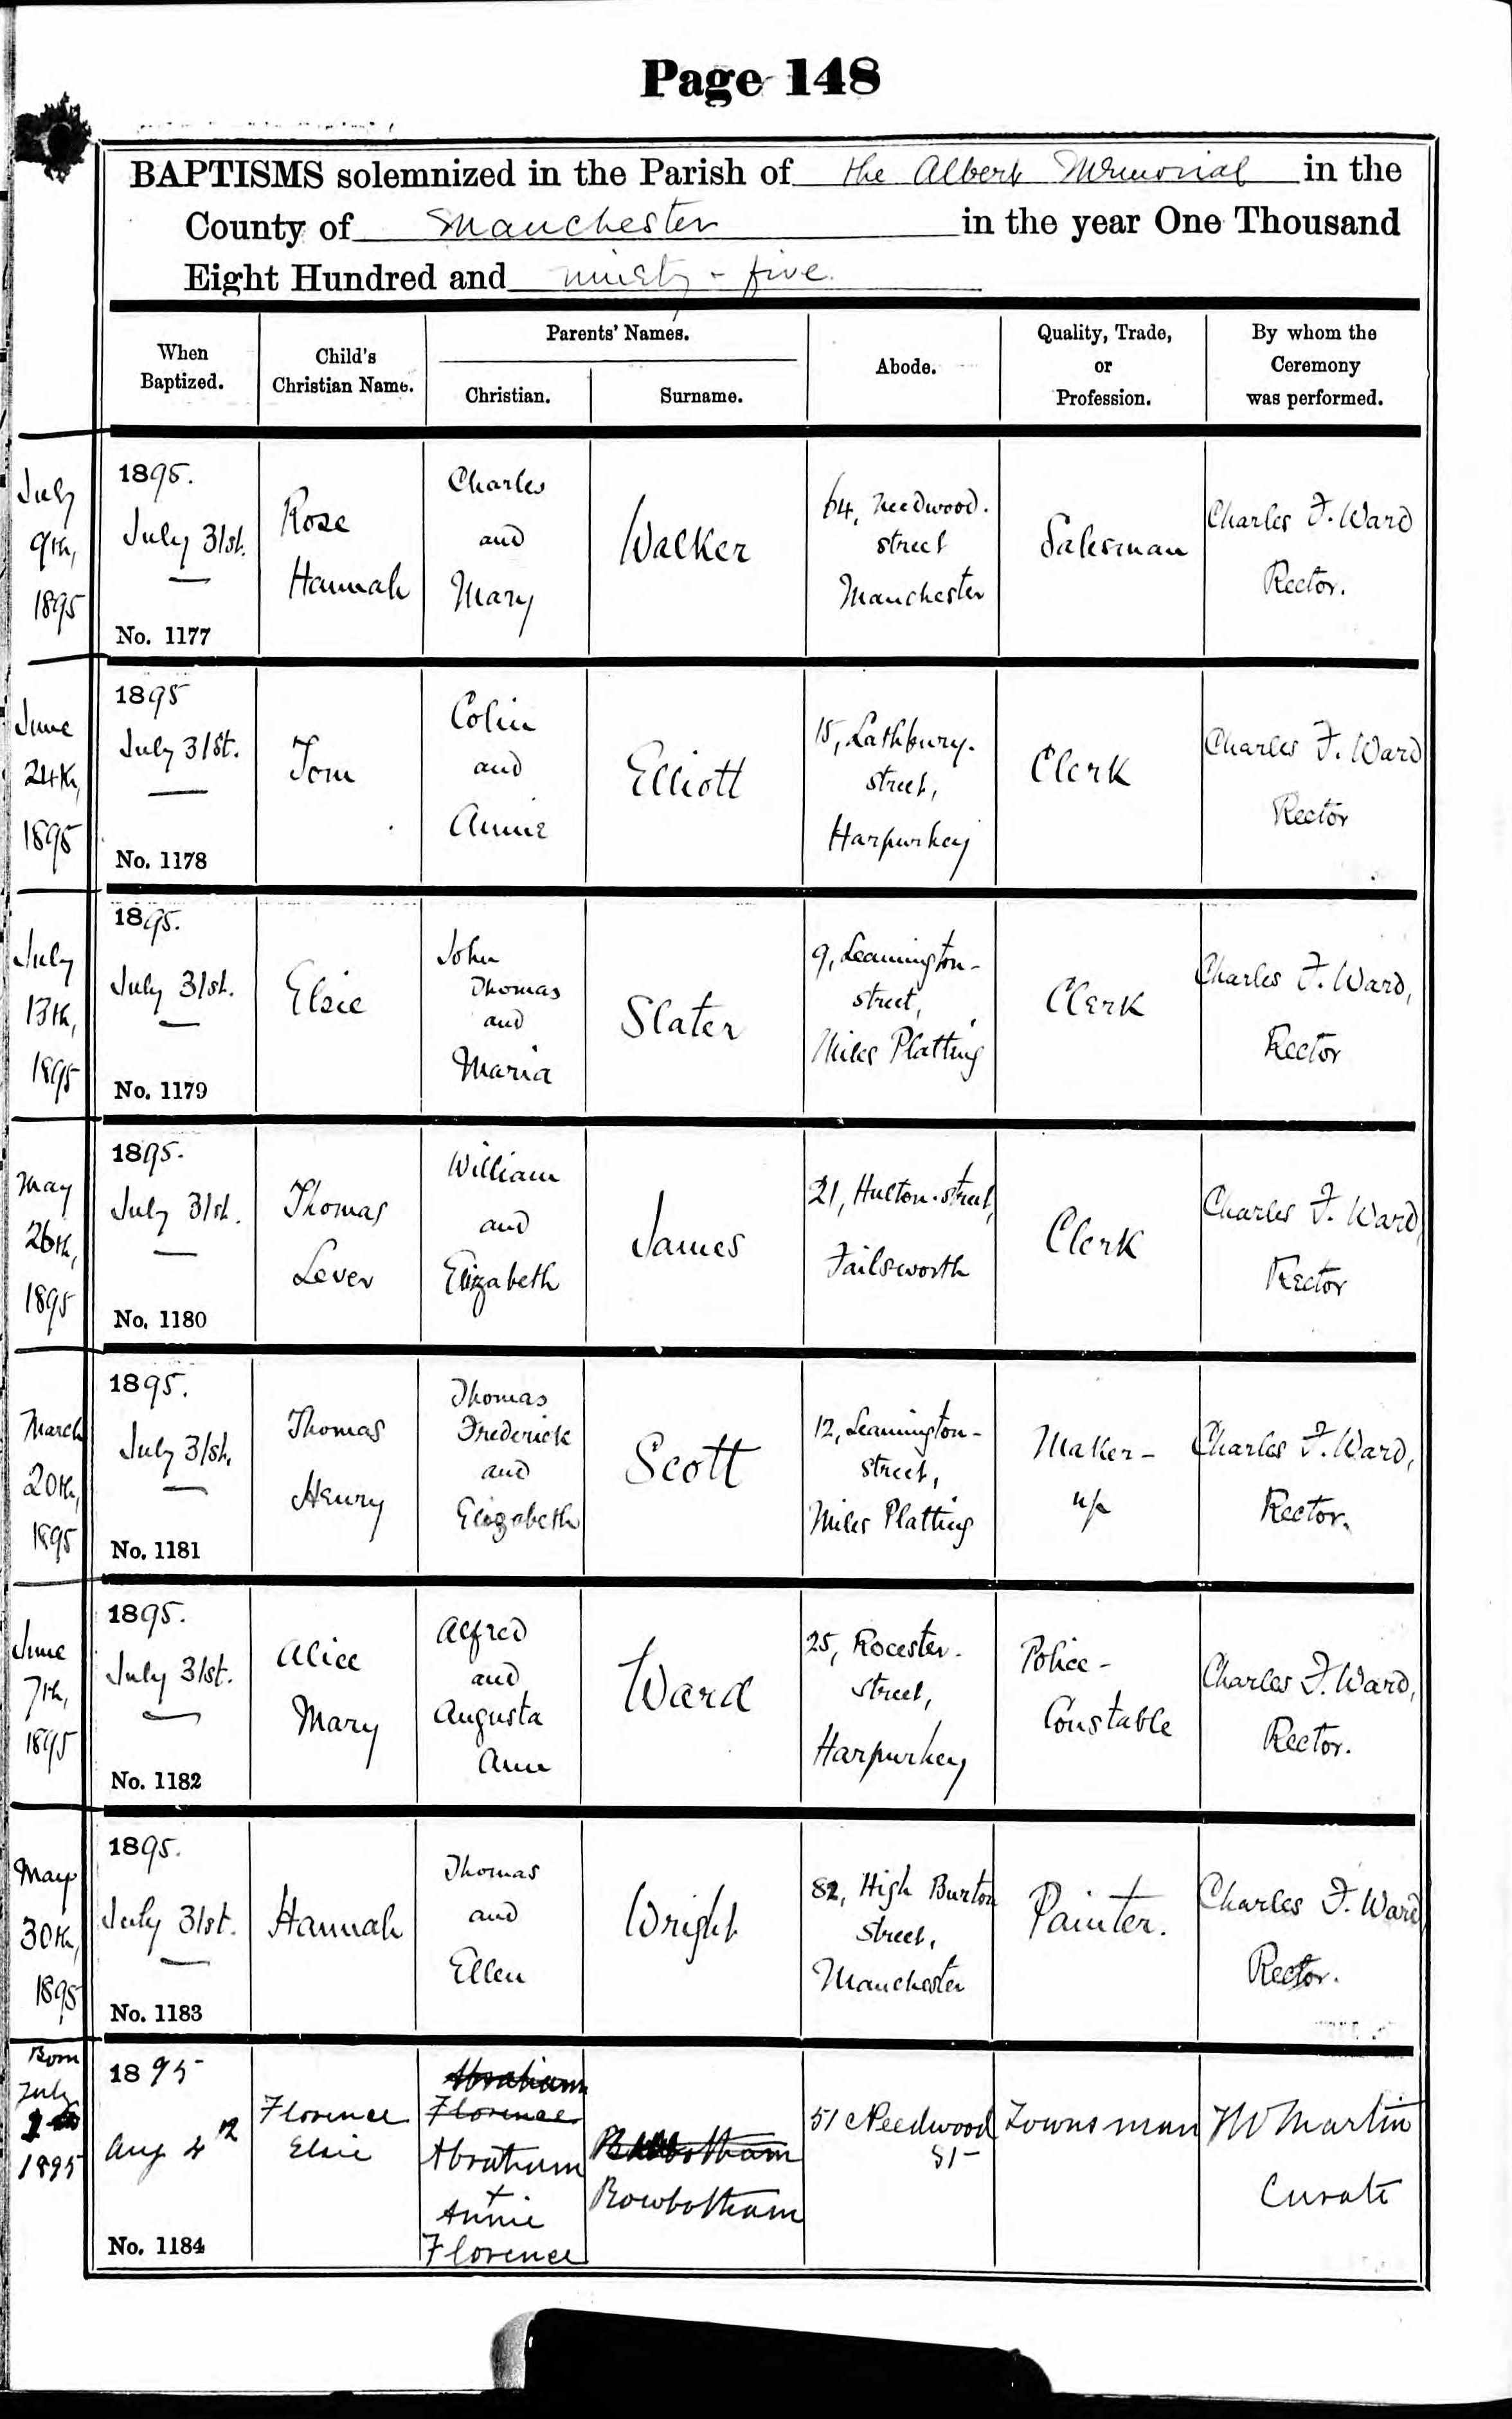 Page 148
BAPTISMS solemnized in the Parish of the Albert Memorial in the
County of Manchester in the year One Thousand
Eight Hundred and ninety-five.
When
Baptized.
Child's
Christian Name.
Parents' Names.
Christian.
Surname.
Abode.
Quality, Trade,
or
Profession.
By whom the
Ceremony
was performed.
July
9th,
1895
1895.
July 31st.
No. 1177
Rose
Hannah
Charles
and
Mary
Walker
64, Needwood.
street
Manchester
Salesman
Charles F. Ward
Rector.
June
24th,
1895
1895
July 31st.
No. 1178
Tom
Colin
and
Annie
Elliott
15, Lathbury.
street,
Harpurhey
Clerk
Charles F. Ward
Rector
July
13th,
1895
1895.
July 31st.
No. 1179
Elsie
John
Thomas
and
Maria
Slater
9, Leamington-
street,
Miles Platting
Clerk
Charles F. Ward,
Rector
May
26th,
1895
1895.
July 31st.
No. 1180
Thomas
Lever
William
and
Elizabeth
James
21, Hulton-street,
Failsworth
Clerk
Charles F. Ward,
Rector
March
20th,
1895
1895.
July 31st.
No. 1181
Thomas
Henry
Thomas
Frederick
and
Elizabeth
Scott
12, Leamington-
street,
Miles Platting
Maker-
up
Charles F. Ward,
Rector.
June
7th,
1895
1895.
July 31st.
No. 1182
Alice
Mary
Alfred
and
Augusta
Ann
Ward
25, Rocester.
street,
Harpurhey
Police-
Constable
Charles F. Ward,
Rector.
May
30th,
1895
1895.
July 31st.
No. 1183
Hannah
Thomas
and
Ellen
Wright
82, High Burton
street,
Manchester
Painter.
Charles F. Ward
Rector.
Born
July
1895
1895
Aug 4th
No. 1184
Florence
Elsie
Abraham
Florence
Abraham
+
Annie
Florence
Rowbotham
51 Needwood
St
Townsman
W Martin
Curate